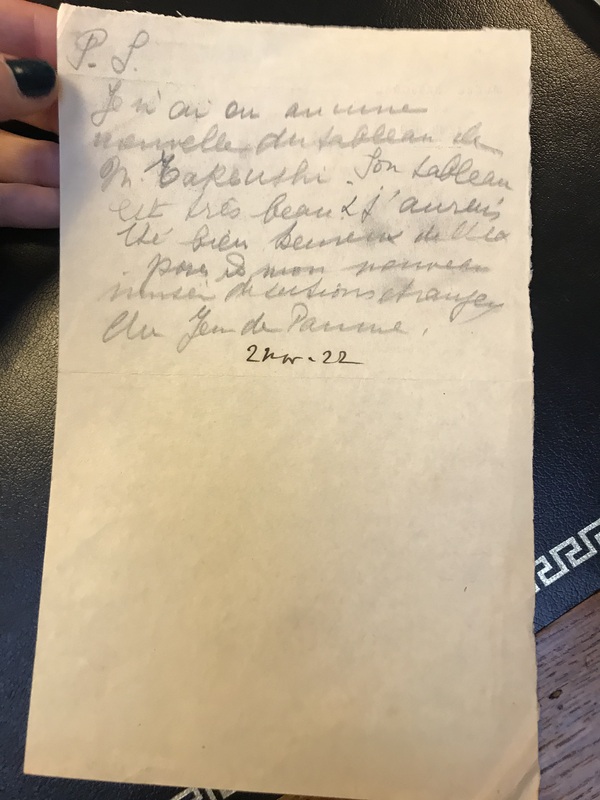 P. S.
Je n'ai eu aucune
nouvelle du tableau de
M. Takeushi. Son tableau
est très beau & j'aurais
été bien heureux de l'ex
poser à mon nouveau
musée des ections etrangeres
du Jeu de Paume.
2 nov. 22